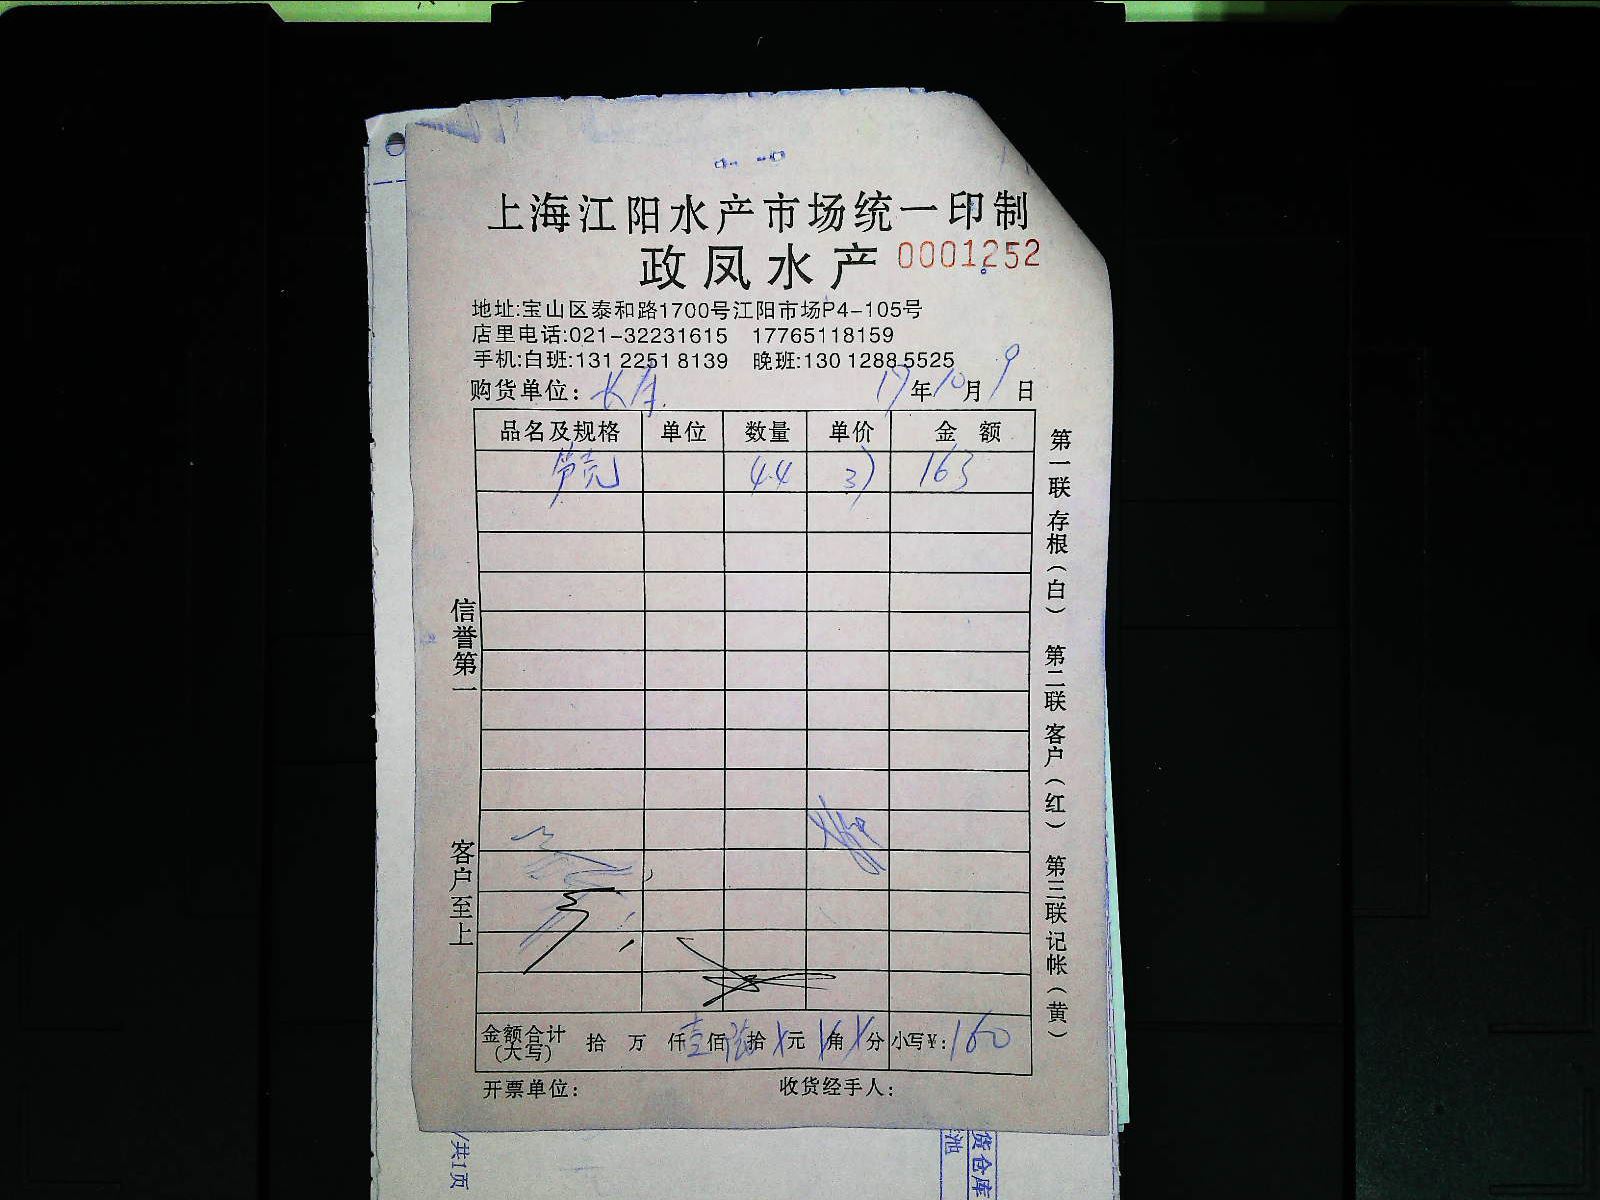 上海江阳水产市场统一印制
政凤水产 0001252
地址:宝山区泰和路1700号江阳市场P4-105号
店里电话:021-32231615 17765118159
手机:白班:131 2251 8139 晚班:130 1288 5525
购货单位: 年10月9日
品名及规格 单位 数量 单价 金额
笋壳 4.4 163
金额合计(大写) 拾 万 仟壹佰陆拾 元 角 分 小写¥:160
开票单位: 收货经手人:
信誉第一
客户至上
第一联 存根(白) 第二联 客户(红) 第三联 记帐(黄)
/共1页
货仓库